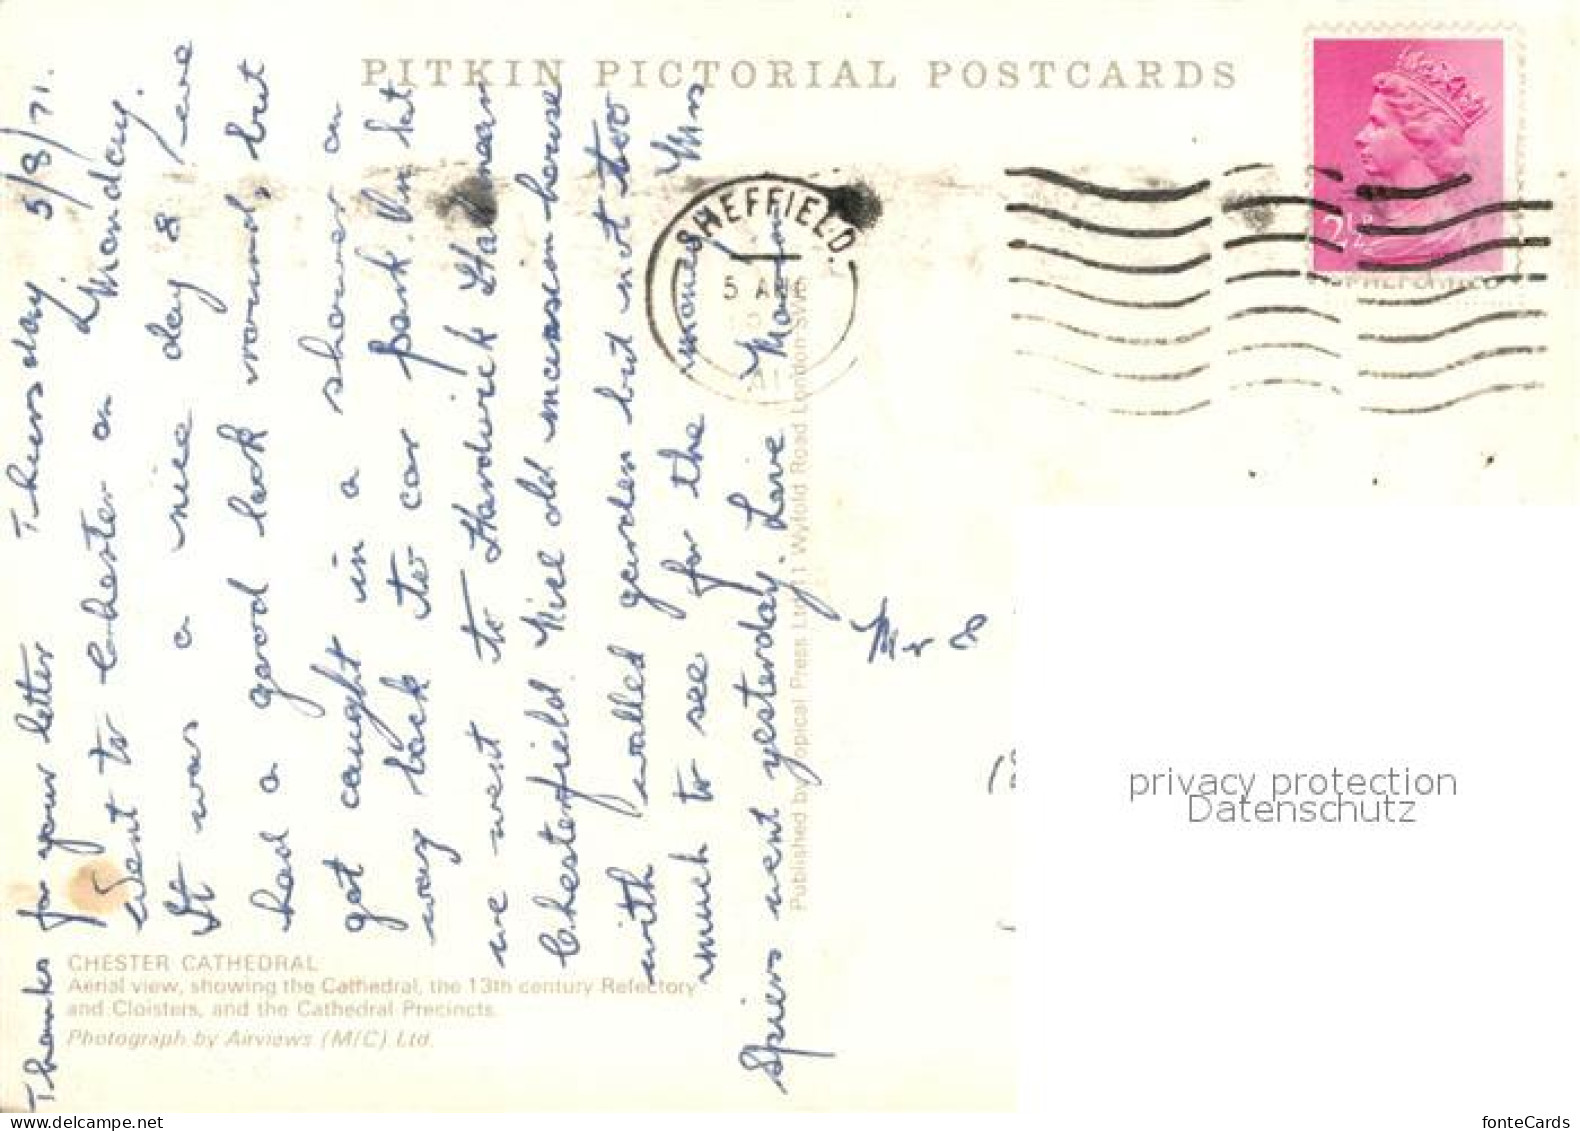 PITKIN PICTORIAL POSTCARDS
Thursday 5/8/71.
Thanks for your letter
Went to Chester on Monday.
It was a nice day & we
had a good look round, but
got caught in a shower on
way back to car park. On Sat
we went to Hardwick Hall near
Chesterfield. Nice old mansion house
with walled garden but not too
much to see for the money. Mrs
Spiers went yesterday. Love Marion
Mr &
SHEFFIELD.
5 AUG
2½P
CHESTER CATHEDRAL
Aerial view, showing the Cathedral, the 13th century Refectory
and Cloisters, and the Cathedral Precincts.
Photograph by Airviews (M/C) Ltd.
Published by Topical Press Ltd 11 Wyfold Road London SW6
privacy protection
Datenschutz
fonteCards